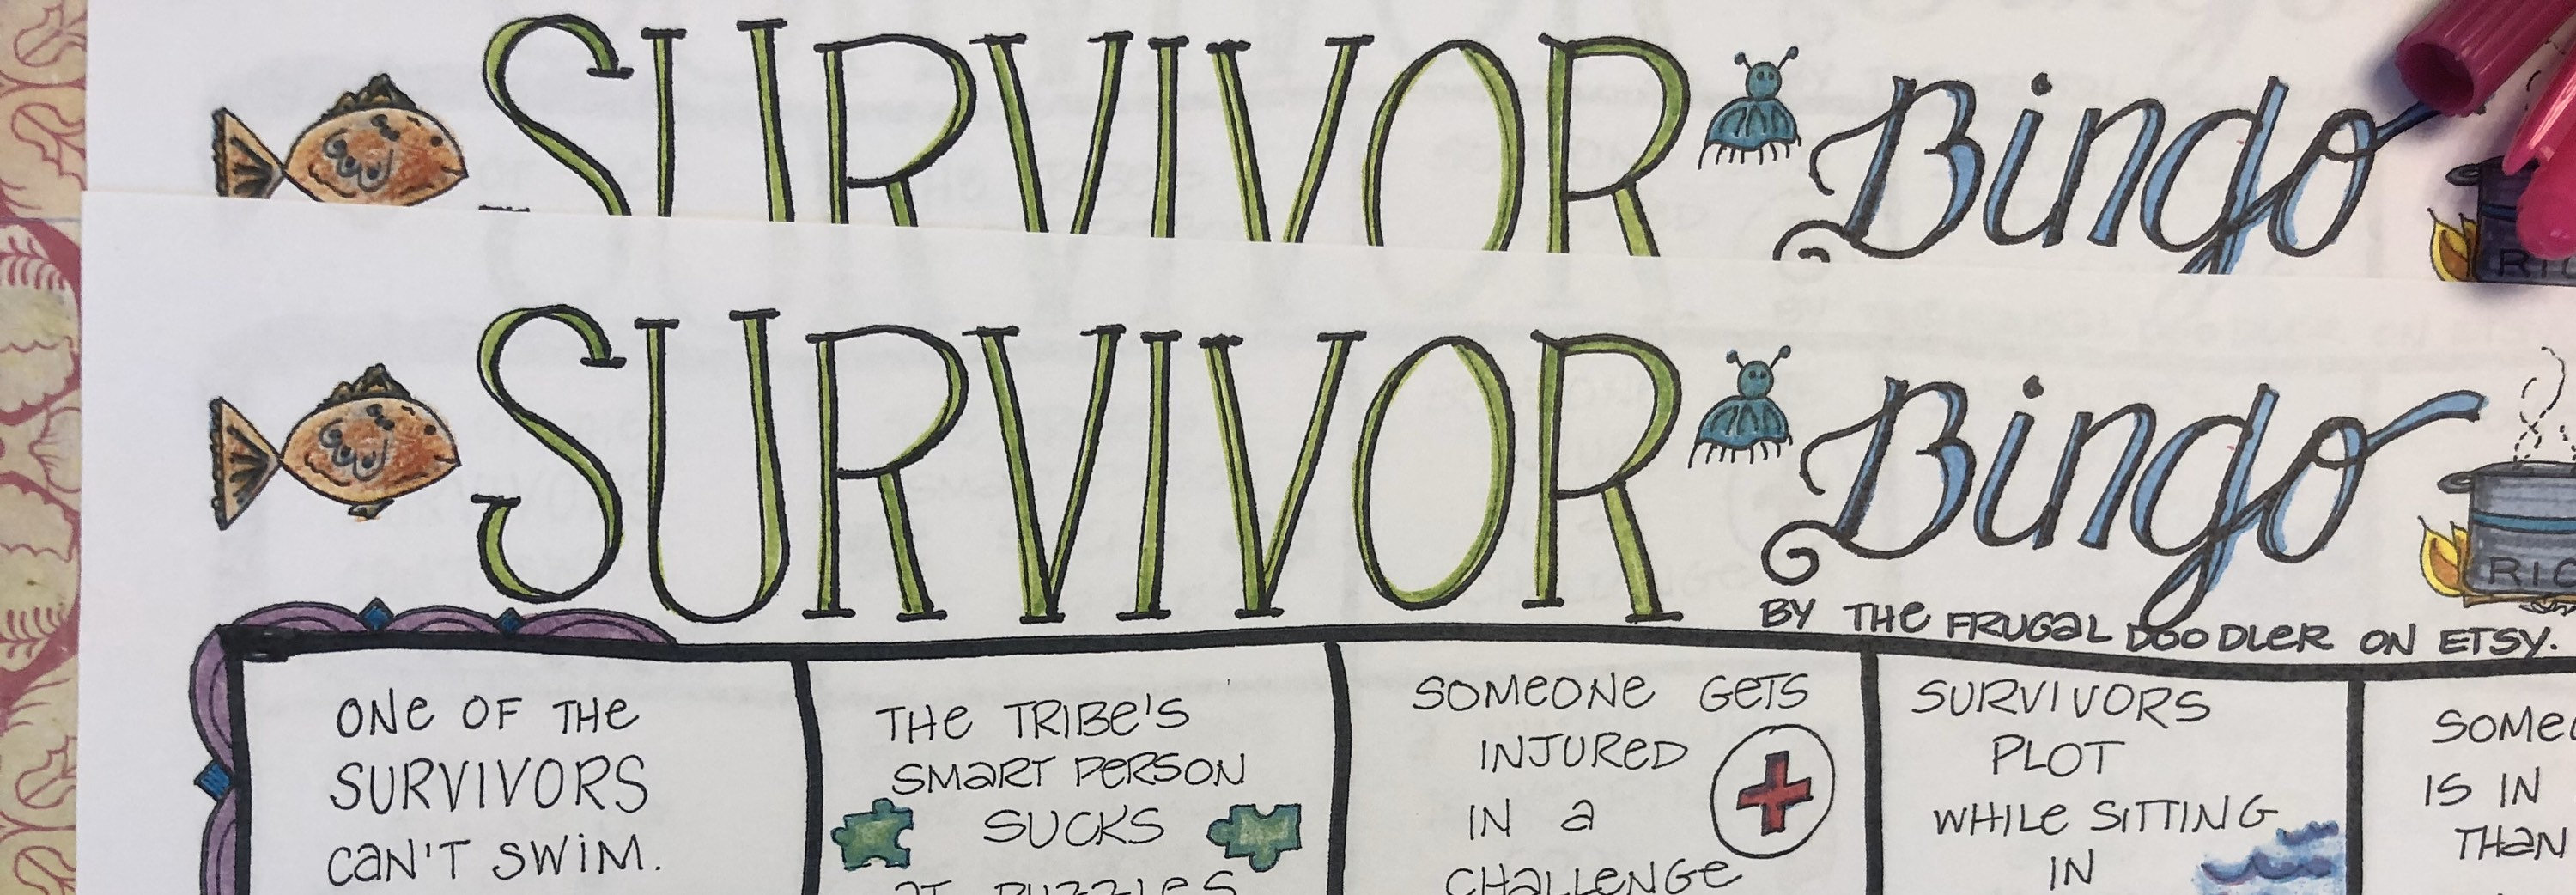 SURVIVOR Bingo
RIC
SURVIVOR Bingo
RIC
BY THE FRUGAL DOODLER ON ETSY.
ONE OF THE
SURVIVORS
CAN'T SWIM.
THE TRIBE'S
SMART PERSON
SUCKS
AT PUZZLES
SOMEONE GETS
INJURED
IN A
CHALLENGE
SURVIVORS
PLOT
WHILE SITTING
IN
SOMEO
IS IN
THAN